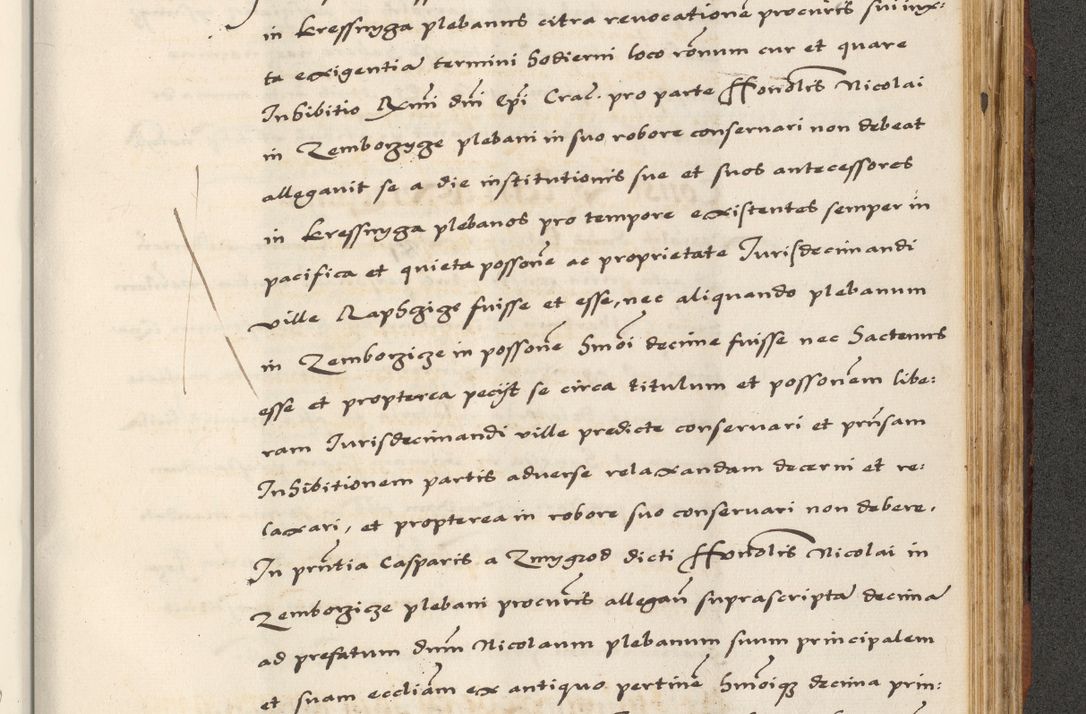 in kressnyga plebanus citra revocationē procur̄is sui iux:
ta exigentiā termini hodierni loco rōnum cur et quare
Inhibitio Rm̄i dn̄i Ep̄i Crac. pro parte Hono͞lis Nicolai
in Zemborzyge plebani in suo robore conservari non debeat
allegavit se a die institutionis sue et suos antecessores
in kressnyga plebanos pro tempore existentes semper in
pacifica et quieta possonē ac proprietate Iurisdecimandi
ville Raphzigs fuisse et esse, nec aliquando plebanum
in Zemborzicze in possonē hmōi decime fuisse nec hactenus
esse et propterea pecijt se circa titulum et possonēm libe:
ram Iurisdecimandi ville predicte conservari et prn̄sam
Inhibitionem partis adverse relaxandam decerni et re:
laxari, et propterea in robore suo conservari non debere.
In prn̄tia Casparis a Zmygrod dicti Hono͞lis Nicolai in
Zemborzicze plebani procur̄is allegan̄ suprascriptā decimā
ad prefatum dnm̄ Nicolaum plebanum suum principalem
et suam eccliām ex antiquo pertinē hmōiqȝ decima prin: